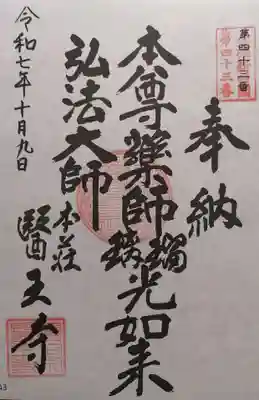 第四十三番
奉納
本尊薬師瑠璃光如来
弘法大師
本荘
醫王寺
令和七年十月九日
43